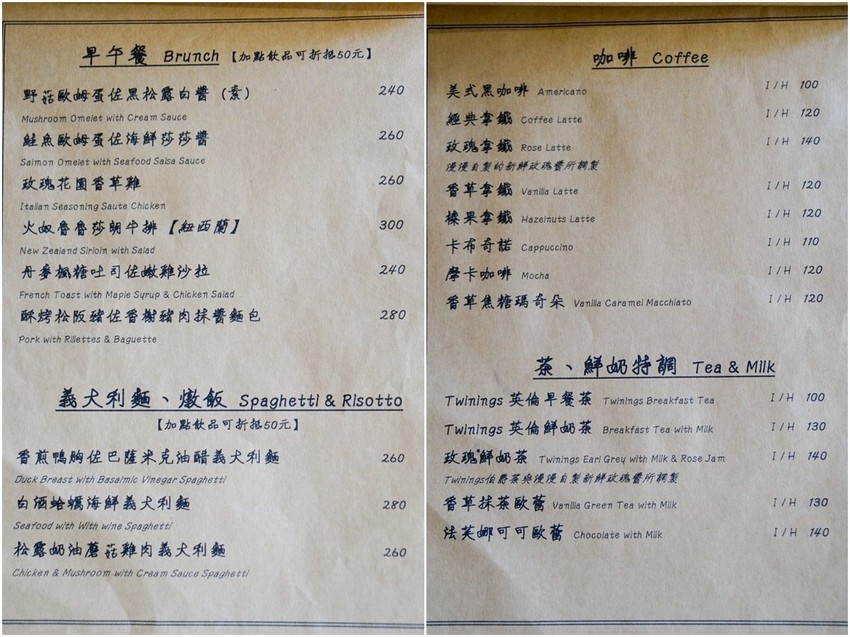 早午餐 Brunch【加點飲品可折抵50元】
野菇歐姆蛋佐黑松露白醬（素） 240
Mushroom Omelet with Cream Sauce
鮭魚歐姆蛋佐海鮮莎莎醬 260
Salmon Omelet with Seafood Salsa Sauce
玫瑰花園香草雞 260
Italian Seasoning Saute Chicken
火奴魯魯莎朗牛排【紐西蘭】 300
New Zealand Sirloin with Salad
丹麥楓糖吐司佐嫩雞沙拉 240
French Toast with Maple Syrup & Chicken Salad
酥烤松阪豬佐香榭豬肉抹醬麵包 280
Pork with Rillettes & Baguette
義大利麵、燉飯 Spaghetti & Risotto
【加點飲品可折抵50元】
香煎鴨胸佐巴薩米克油醋義大利麵 260
Duck Breast with Basalmic Vinegar Spaghetti
白酒蛤蠣海鮮義大利麵 280
Seafood with With wine Spaghetti
松露奶油蘑菇雞肉義大利麵 260
Chicken & Mushroom with Cream Sauce Spaghetti
咖啡 Coffee
美式黑咖啡 Americano I / H 100
經典拿鐵 Coffee Latte I / H 120
玫瑰拿鐵 Rose Latte I / H 140
漫漫自製的新鮮玫瑰醬所調製
香草拿鐵 Vanilla Latte I / H 120
榛果拿鐵 Hazelnuts Latte I / H 120
卡布奇諾 Cappuccino I / H 110
摩卡咖啡 Mocha I / H 120
香草焦糖瑪奇朵 Vanilla Caramel Macchiato I / H 120
茶、鮮奶特調 Tea & Milk
Twinings 英倫早餐茶 Twinings Breakfast Tea I / H 100
Twinings 英倫鮮奶茶 Breakfast Tea with Milk I / H 130
玫瑰鮮奶茶 Twinings Earl Grey with Milk & Rose Jam I / H 140
Twinings伯爵茶與漫漫自製新鮮玫瑰醬所調製
香草抹茶歐蕾 Vanilla Green Tea with Milk I / H 130
法芙娜可可歐蕾 Chocolate with Milk I / H 140